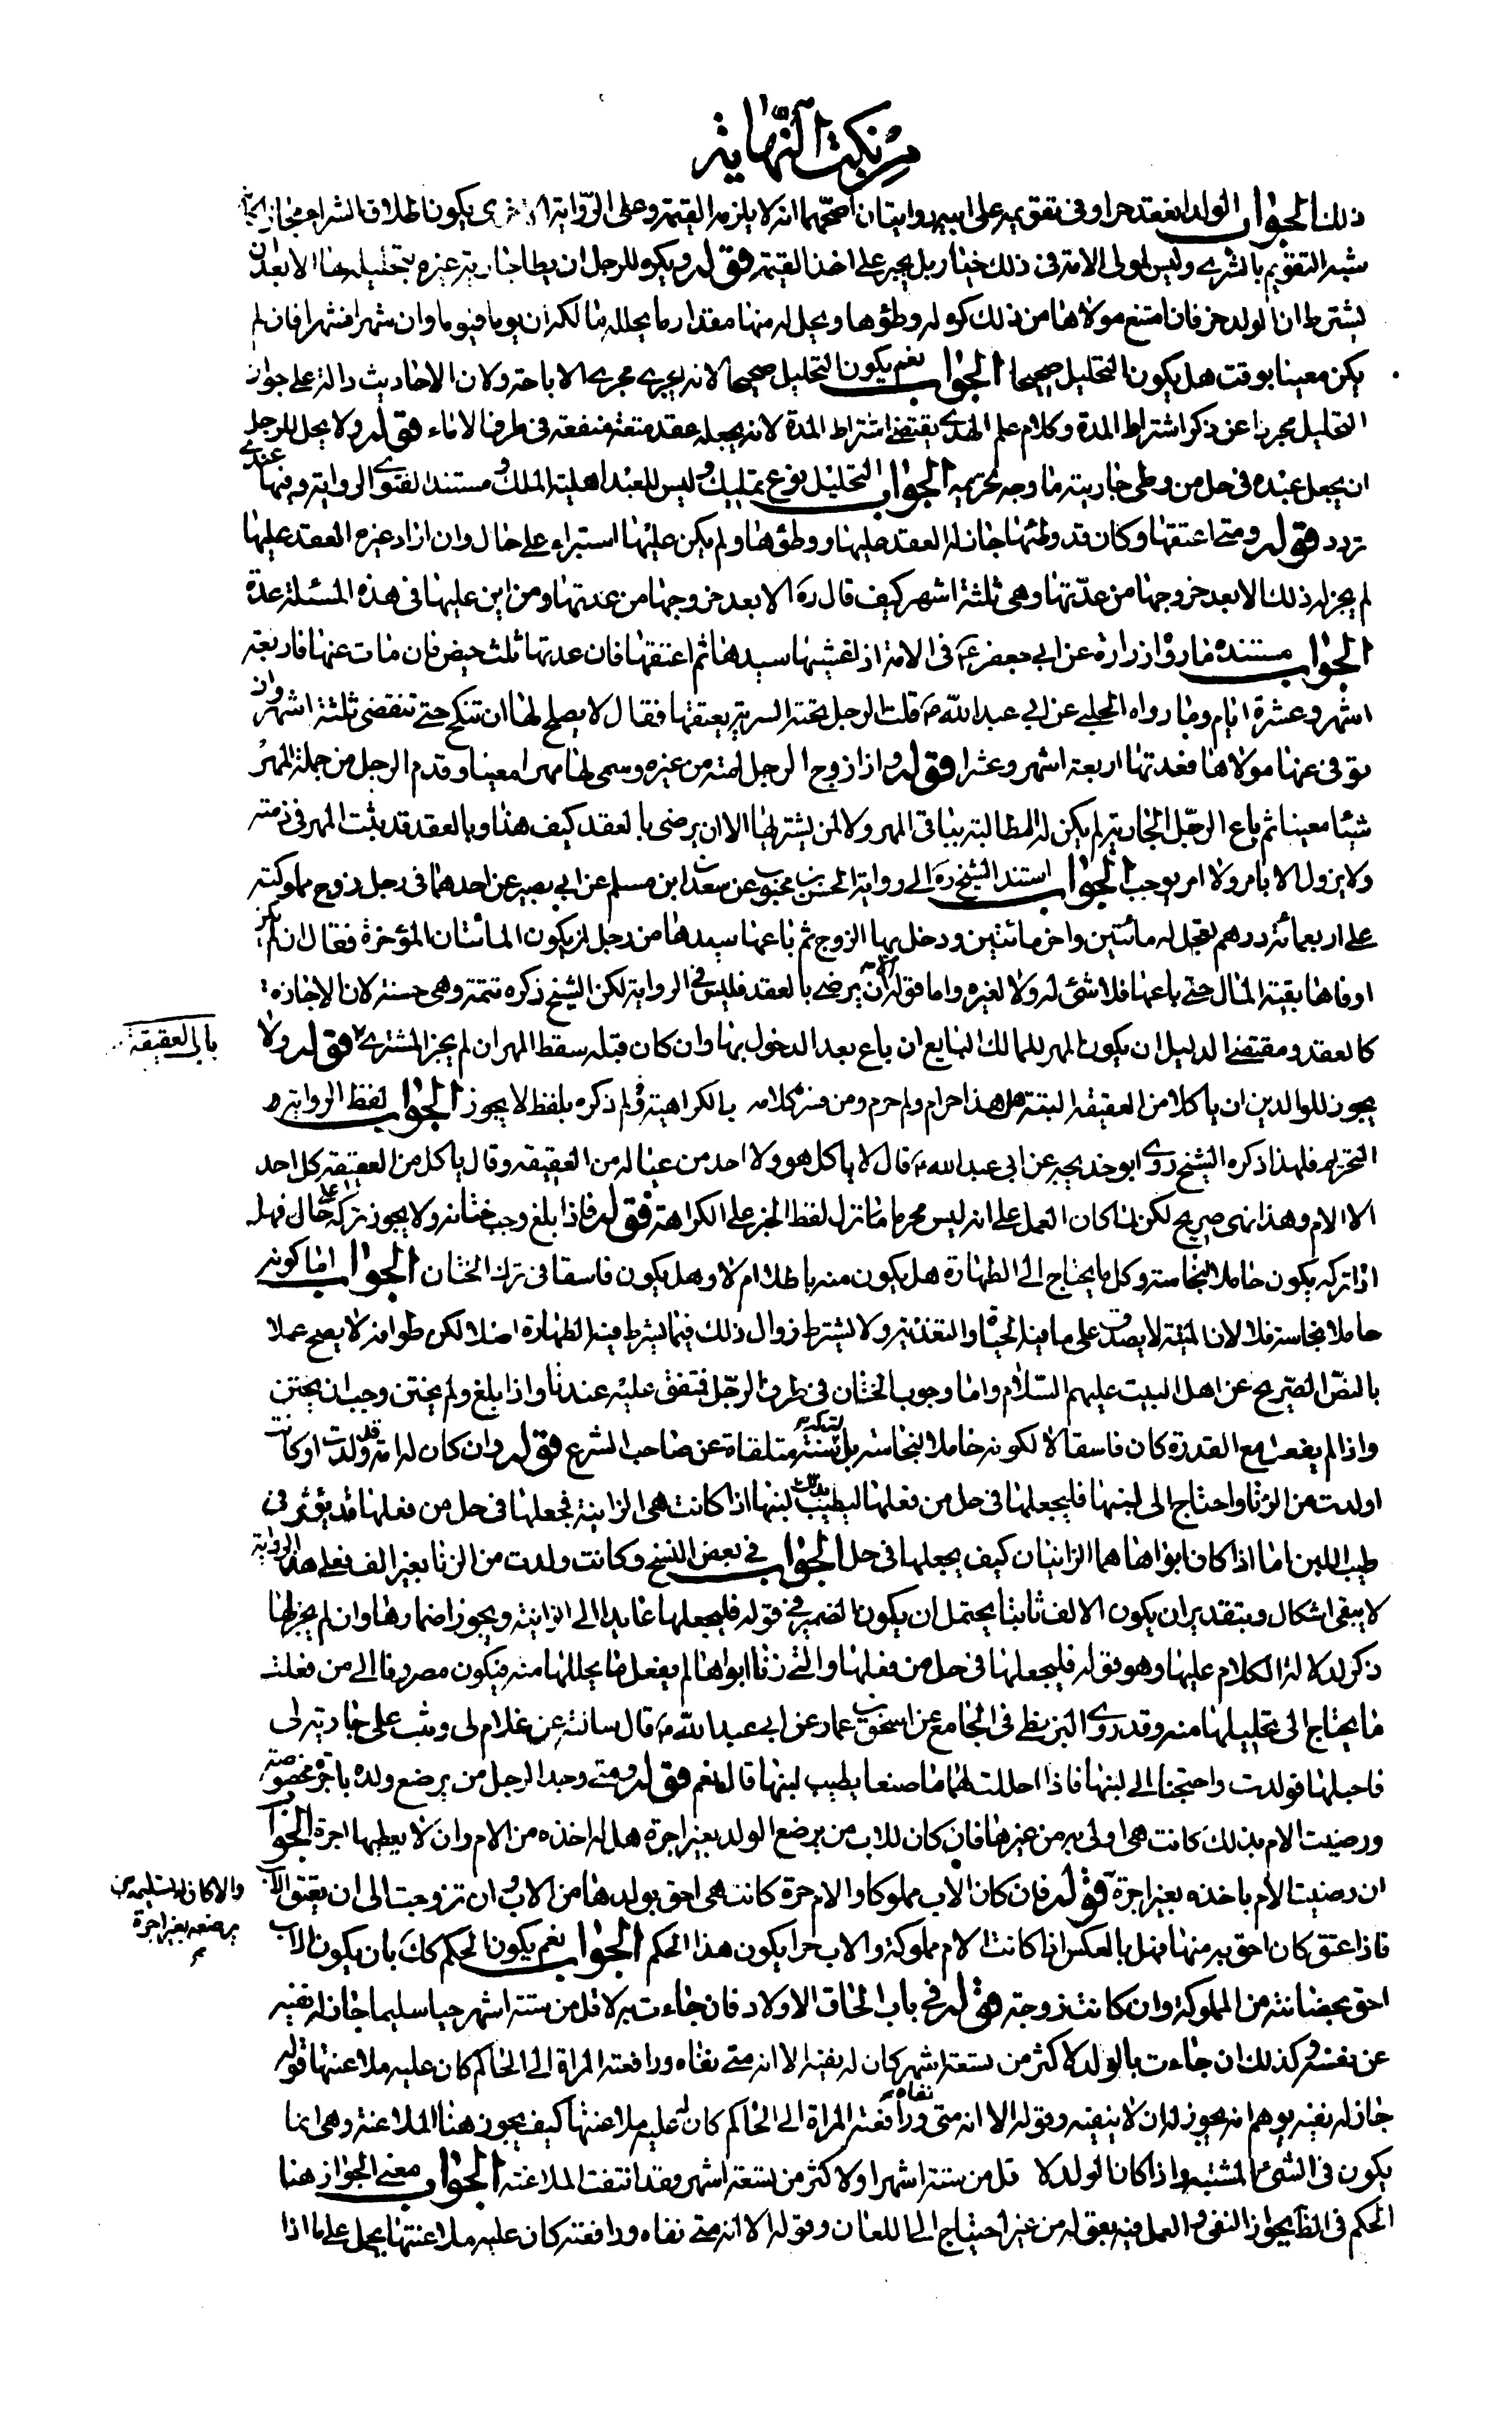 من نكت النهاية
ذلك الجواب الولد انعقد حرا وفى تقويمه على ابيه روايتان اصحهما انه لا يلزمه القيمة وعلى الرواية الاخرى يكون اطلاق الشراء مجازا
شبه التقويم بالشرى وليس لمولى الامة فى ذلك خيار بل يجبر على اخذ القيمة قوله ويكره للرجل ان يطا جارية غيره بتحليله لها الا بعد ان
يشترط ان الولد حر فان امتنع مولاها من ذلك كره له وطؤها ويحل له منها مقدار ما يحلله مالكه ان يوما فيوما وان شهرا فشهرا فان لم
يكن معينا بوقت هل يكون التحليل صحيحا الجواب نعم يكون التحليل صحيحا لانه يجرى مجرى الاباحة ولان الاحاديث دالة على جواز
التحليل مجردا عن ذكر اشتراط المدة وكلام علم الهدى يقتضى اشتراط المدة لانه يجعله عقد متعة منفعته فى طرف الاماء قوله ولا يحل للرجل
ان يجعل عبده فى حل من وطى جاريته ما وجه تحريمه الجواب التحليل نوع تمليك وليس للعبد اهلية الملك ومستند الفتوى الرواية وفيها عندى
تردد قوله ومتى اعتقها وكان قد وطئها جاز له العقد عليها ووطؤها ولم يكن عليها استبراء على حال وان اراد غيره العقد عليها
لم يجز له ذلك الا بعد خروجها من عدتها وهى ثلثة اشهر كيف قال ره الا بعد خروجها من عدتها ومن اين عليها فى هذه المسئلة عدة
الجواب مستنده ما رواه زرارة عن ابى جعفر ع فى الامة اذا غشيها سيدها ثم اعتقها فان عدتها ثلث حيض فان مات عنها فاربعة
اشهر وعشرة ايام وما رواه الحلبى عن ابى عبد الله ع قلت الرجل تحته السرية يعتقها فقال لا يصلح لها ان تنكح حتى تنقضى ثلثة اشهر وان
توفى عنها مولاها فعدتها اربعة اشهر وعشرا قوله واذا زوج الرجل امته من غيره وسمى لها مهرا معينا وقدم الرجل من جملة المهر
شيئا معينا ثم باع الرجل الجارية لم يكن له المطالبة بباقى المهر ولا لمن يشتريها الا ان يرضى بالعقد كيف هذا وبالعقد قد يثبت المهر فى ذمته
ولا يزول الا بامر ولا امر يوجب الجواب استند الشيخ ره الى رواية الحسن بن محبوب عن سعدان ابن مسلم عن ابى بصير عن احدهما فى رجل زوج مملوكته
على اربعمائة درهم فعجل له مائتين واخر مائتين ودخل بها الزوج ثم باعها سيدها من رجل لمن يكون المائتان المؤخرة فقال ان لم يكن
اوفاها بقية المال حتى باعها فلا شئ له ولا لغيره واما قوله الا ان يرضى بالعقد فليس فى الرواية لكن الشيخ ذكره تتمة وهى حسنة لان الاجازة
كالعقد ومقتضى الدليل ان يكون المهر للمالك البايع ان باع بعد الدخول بها وان كان قبله سقط المهر ان لم يجز المشترى قوله ولا
باب العقيقة
يجوز للوالدين ان ياكلا من العقيقة البتة هل هذا حرام ولم حرم ومن فسر كلامه بالكراهية فلم ذكره بلفظ لا يجوز الجواب لفظ الرواية
التحريم فلهذا ذكره الشيخ روى ابو خديجة عن ابى عبد الله ع قال لا ياكل هو ولا احد من عياله من العقيقة وقال ياكل من العقيقة كل احد
الا الام وهذا نهى صريح لكن لما كان العمل على انه ليس محرما نزل لفظ الخبر على الكراهة قوله فاذا بلغ وجب ختانه ولا يجوز تركه على حال فهل
اذا تركه يكون حاملا لنجاسة وكل ما يحتاج الى الطهارة هل يكون منه باطلا ام لا وهل يكون فاسقا فى ترك الختان الجواب اما كونه
حاملا نجاسة فلا لان الميتة لا يصدق على ما فيه الحياة والتغذية ولا يشترط زوال ذلك فيما يشترط فيه الطهارة اصلا لكن طوافه لا يصح عملا
بالنص الصريح عن اهل البيت عليهم السلام واما وجوب الختان فى طرف الرجل فمتفق عليه عندنا واذا بلغ ولم يختن وجب ان يختن
واذا لم يفعل مع القدرة كان فاسقا لا لكونه حاملا لنجاسة بل لتركه سنة متلقاة عن صاحب الشرع قوله وان كان له امة قد ولدت او كانت
اولدت من الزنا واحتاج الى لبنها فليجعلها فى حل من فعلها ليطيب بذلك لبنها اذا كانت هى الزانية فجعلها فى حل من فعلها قد يؤثر فى
طيب اللبن اما اذا كان ابواها هما الزانيان كيف يجعلها فى حل الجواب فى بعض النسخ وكانت ولدت من الزنا بغير الف فعلى هذه الرواية
لا يبقى اشكال وبتقدير ان يكون الالف ثابتا يحتمل ان يكون الضمير فى قوله فليجعلها عايدا الى الزانية ويجوز اضمارها وان لم يجز لها
ذكر لدلالة الكلام عليها وهو قوله فليجعلها فى حل من فعلها والتى زنا ابواها لم يفعل ما يحللها منه فيكون مصروفا الى من فعلت
ما يحتاج الى تحليلها منه وقد روى البزنطى فى الجامع عن اسحق بن عمار عن ابى عبد الله ع قال سالته عن غلام لى وثب على جارية لى
فاحبلها فولدت واحتجنا الى لبنها فاذا احللت لهما ما صنعا يطيب لبنها قال نعم قوله ومتى وجد الرجل من يرضع ولده باجرة مخصوصة
ورضيت الام بذلك كانت هى اولى به من غيرها فان كان للاب من يرضع الولد بغير اجرة هل له اخذه من الام وان لا يعطيها اجرة الجواب
ان رضيت الام باخذه بغير اجرة قوله فان كان الاب مملوكا والام حرة كانت هى احق بولدها من الاب وان تزوجت الى ان يعتق الاب
والا كان له تسليمه من
يرضعه بغير اجرة
فاذا عتق كان احق به منها فهل بالعكس اذا كانت الام مملوكة والاب حرا يكون هذا الحكم الجواب نعم يكون الحكم كك بان يكون الاب
احق بحضانته من المملوكة وان كانت زوجته قوله فى باب الحاق الاولاد فان جاءت به لاقل من ستة اشهر حيا سليما جاز له نفيه
عن نفسه وكذلك ان جاءت بالولد لاكثر من تسعة اشهر كان له نفيه الا انه متى نفاه ورافعته المراة الى الحاكم كان عليه ملاعنتها قوله
جاز له نفيه يوهم انه يجوز له ان لا ينفيه وقوله الا انه متى نفاه ورافعته المراة الى الحاكم كان عليه ملاعنتها كيف يجوز هنا الملاعنة وهى انما
يكون فى الشئ المشتبه واذا كان الولد لاقل من ستة اشهر او لاكثر من تسعة اشهر فقد انتفت الملاعنة الجواب معنى الجواز هنا
الحكم فى الظاهر بجواز النفى والعمل فيه بقوله من غير احتياج الى اللعان وقوله الا انه متى نفاه ورافعته كان عليه ملاعنتها يحمل على ما اذا